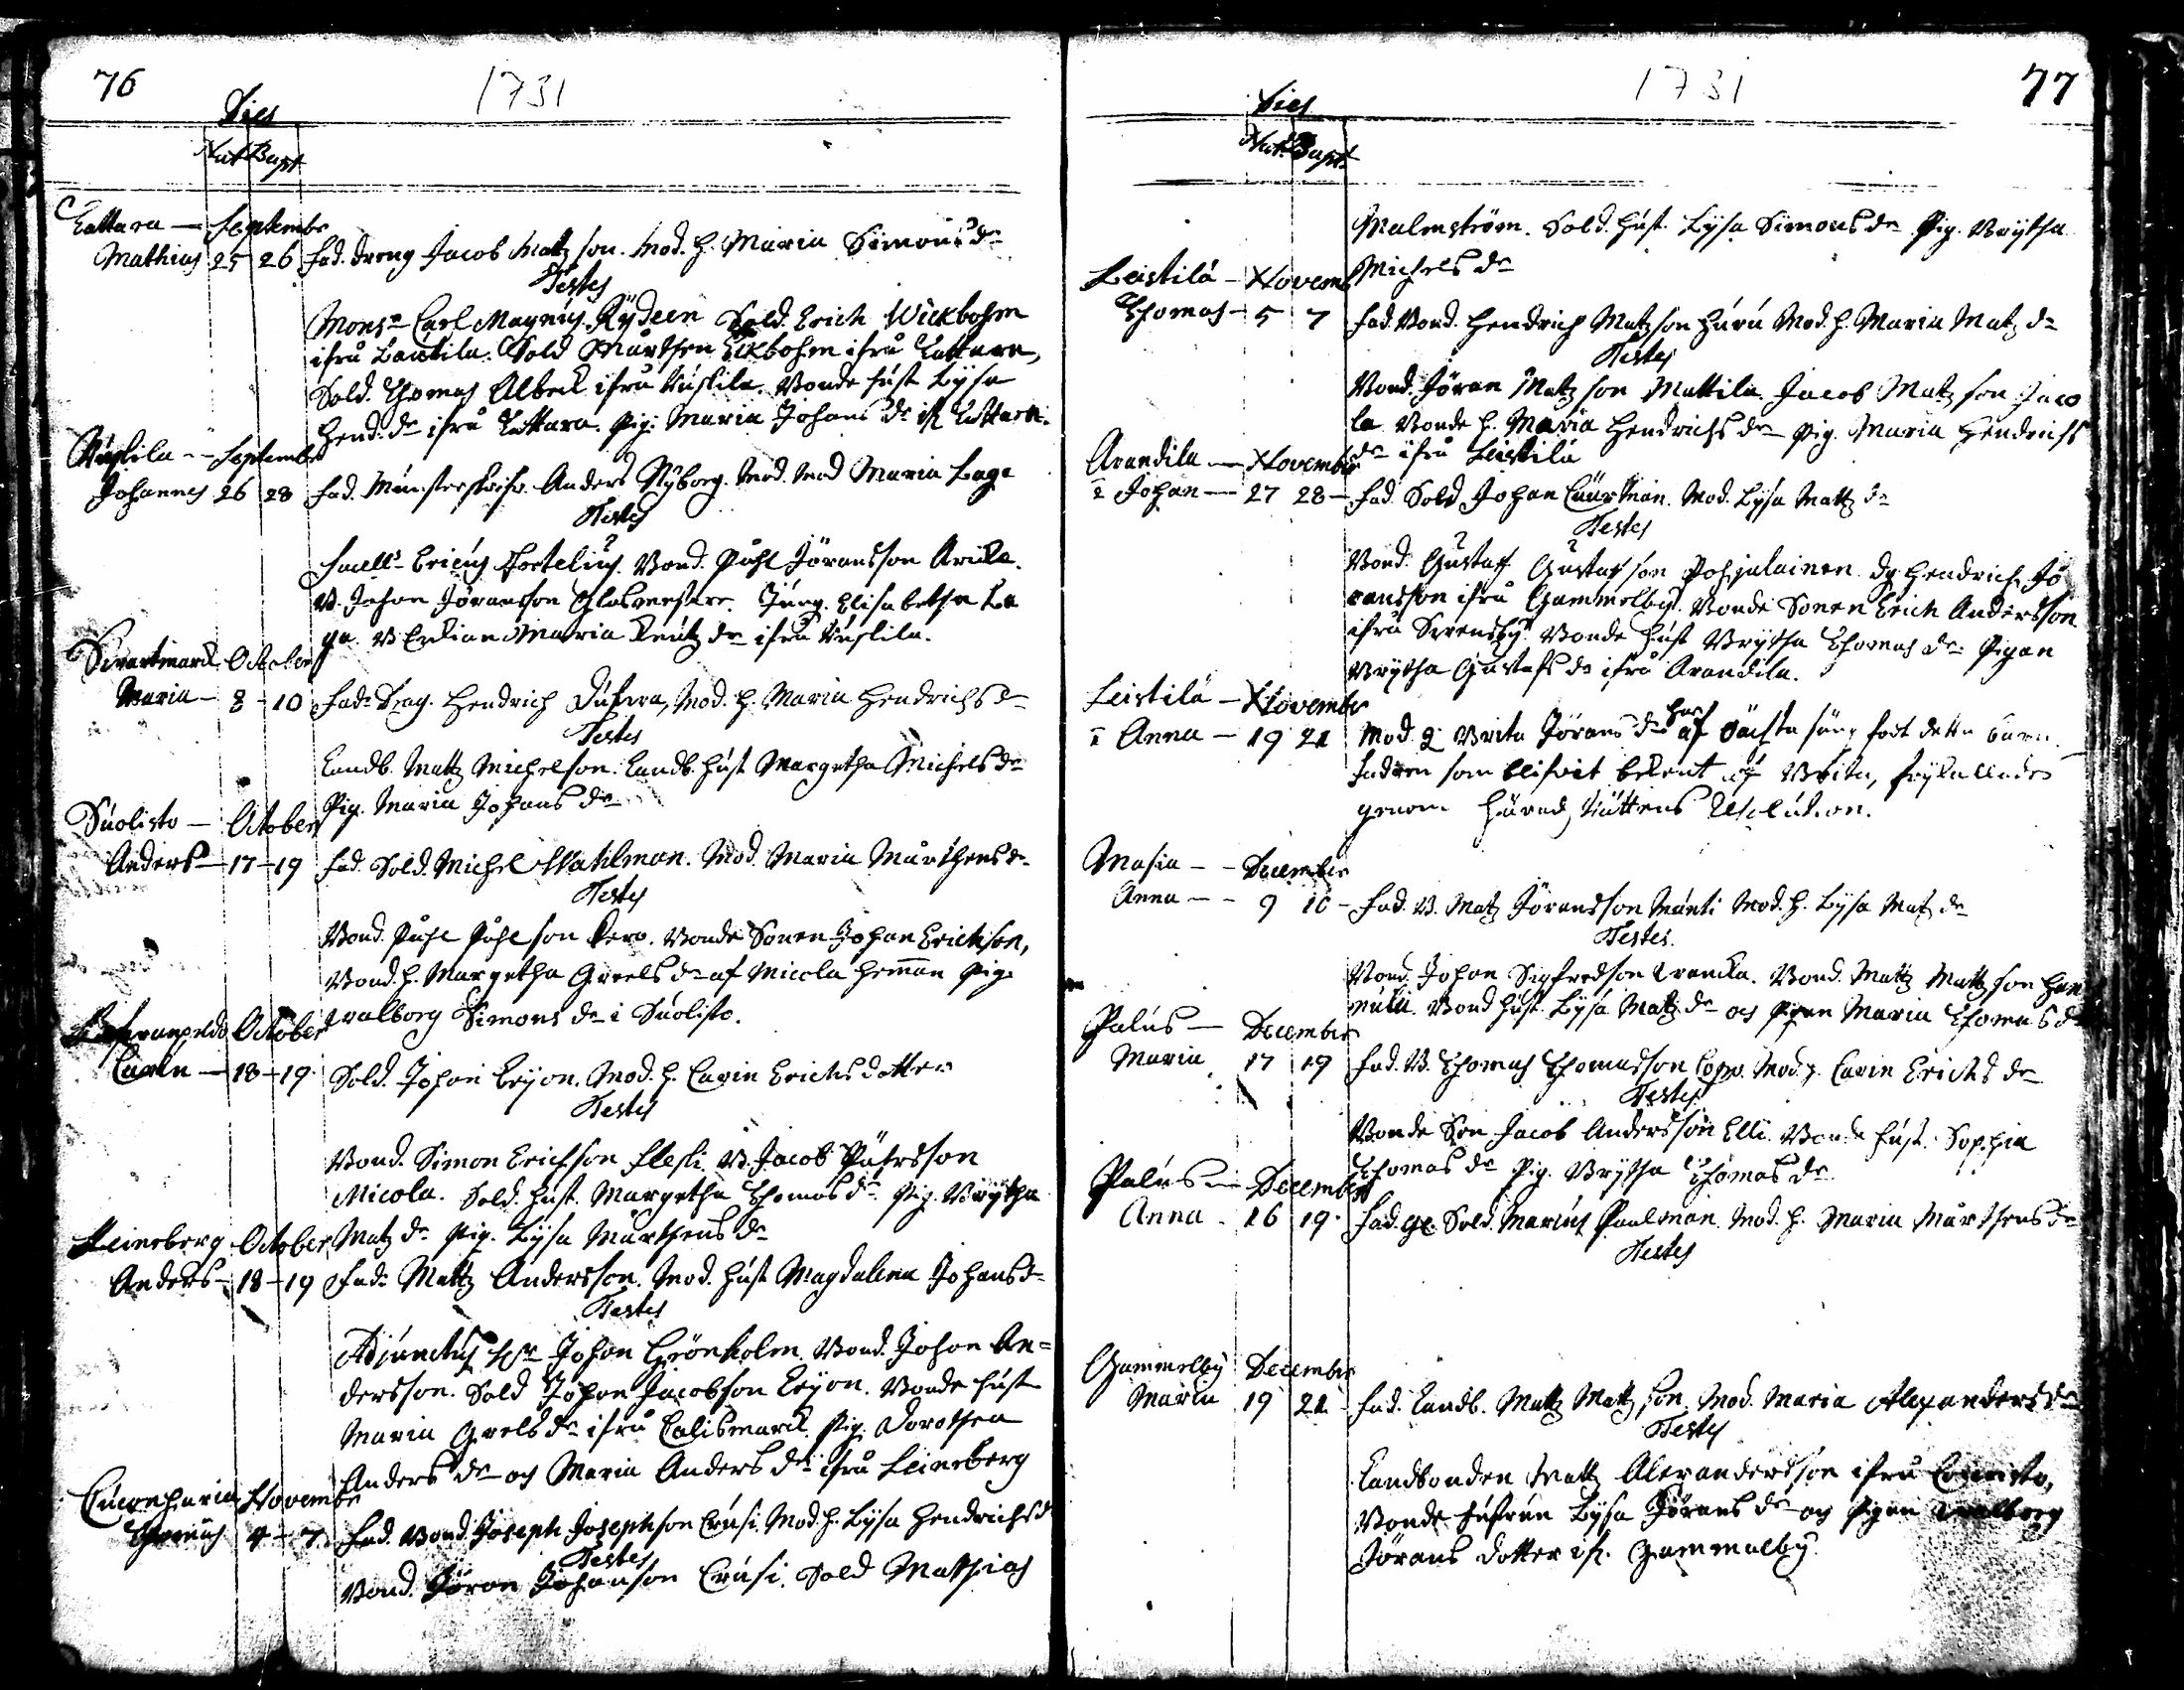 76
1731
Dies
Nat Bapt
Lattara — Septembr
Mathias 25 26 fad. dreng Jacob Matz son. Mod. h. Maria Simons dr
Testes
Monsr Carl Magnus Rydeen Sold. Erich Wickbohm
ifrå Lauttila. Sold Mårthen Ekbohm ifrå Lattara,
Sold. Thomas Albeck ifrå Kuskila. Bonde hust Lysa
Hend. dr ifrå Lattara. Pig. Maria Johans dr if Lattara.
Kuskila — September
Johannes 26 28 fad. Munsterskrifv. Anders Nyborg. Mod. Mod Maria Lage
Testes
Ericus Fortelius. Bond. Påhl Jöransson
B. Johan Jöransson Glasmestare. Jung. Elisabetha La
ga. Maria ifrå Kuskila.
Svartmarck October
Maria — 8 — 10 fadr Drag. Hendrich Mod. h. Maria Hendrichs dr
Testes
Landb. Mattz Michelson. Landb. hust Margetha Michels dr
Pig. Maria Johans dr
Suolisto — October
Anders — 17 — 19 fad. Sold. Michel Wahlman. Mod. Maria Mårthens dr
Testes
Bond. Påhl Påhlson Bonde Sonen Johan Erichson,
Bond. h. Margetha Greels dr af Micola heman Pig.
Walborg Simons dr i Suolisto.
October
Carin — 18 — 19. Sold. Johan Leijon. Mod. h. Carin Erichs dotter
Testes
Bond. Simon Erichson B. Jacob Påhrsson
Micola. Sold. hust. Margetha Thomas dr. Pig. Brytha
Matz dr Pig. Lysa Mårthens dr
Leineberg October
Anders — 18 — 19 Fadr Mattz Andersson. Mod. hust Magdalena Johans dr
Testes
Adjunctus Hr Johan Grönholm. Bond. Johan An=
dersson. Sold Johan Jacobson Leijon. Bonde hust
Maria Greels dr ifrå Calismarck. Pig. Dorothea
Anders dr och Maria Anders dr ifrå Leineberg
Novembr
Thomas 4 — 7. fad. Bond. Joseph Josephson Crusi. Mod h. Lysa Hendrichs d
Testes
Bond. Jöran Johanson Crusi. Sold Mathias
77
1731
Dies
Nat. Bapt.
Malmström. Sold. hust. Lysa Simons dr Pig. Brytha
Michels dr
Leistilä — Novemb
Thomas — 5 7 fad. Bond. Hendrich Matz son Mod. h. Maria Matz dr
Testes
Bond. Jöran Matz son Mattila. Jacob Matz son Jaco
la Bonde h. Maria Hendrichs dr Pig. Maria Hendrichs
dr ifrå Leistilä
Arandila — November
Johan — 27 28 — fad. Sold. Johan Mod. Lysa Mattz dr
Testes
Bond. Gustaf Gustafson Pohjalainen. dg Hendrich Jö
ransson ifrå Gammelby. Bonde Sonen Erich Andersson
ifrå Svensby. Bonde hust Brytha Thomas dr. Pigan
Brytha Gustafs dr ifrå Arandila.
Leistilä — November
Anna — 19 21 Mod. Brita Jörans dr har af säng födt detta barn.
Fadren som blifvit bekent af Brita, frykallades
genom Härads Rättens Resolution.
Masia — December
Anna — 9 10 — fad. B. Matz Jöransson Mänti Mod. h. Lysa Matz dr
Testes.
Bond. Johan Sigfredson Bond. Mattz Mattz son Han
nula. Bond hust. Lysa Matz dr och Pigan Maria Thomas dr
Palus — December
Maria 17 19 fad. B. Thomas Thomasson Mod h. Carin Erichs dr
Testes
Bonde Son Jacob Andersson Elli. Bonde hust. Sophia
Thomas dr Pig. Brytha Thomas dr
Palus — December
Anna. 16 19. fad. Sold. Marcus Paulman. Mod. h. Maria Mårthens dr
Testes
Gammelby December
Maria 19 21 — fad. Landb. Mattz Mattz son. Mod. Maria Alexanders dr
Testes
Landbonden Mattz Alexandersson ifrå
Bonde hustrun Lysa Jörans dr och Pigan Walborg
Jörans dotter if. Gammelby.